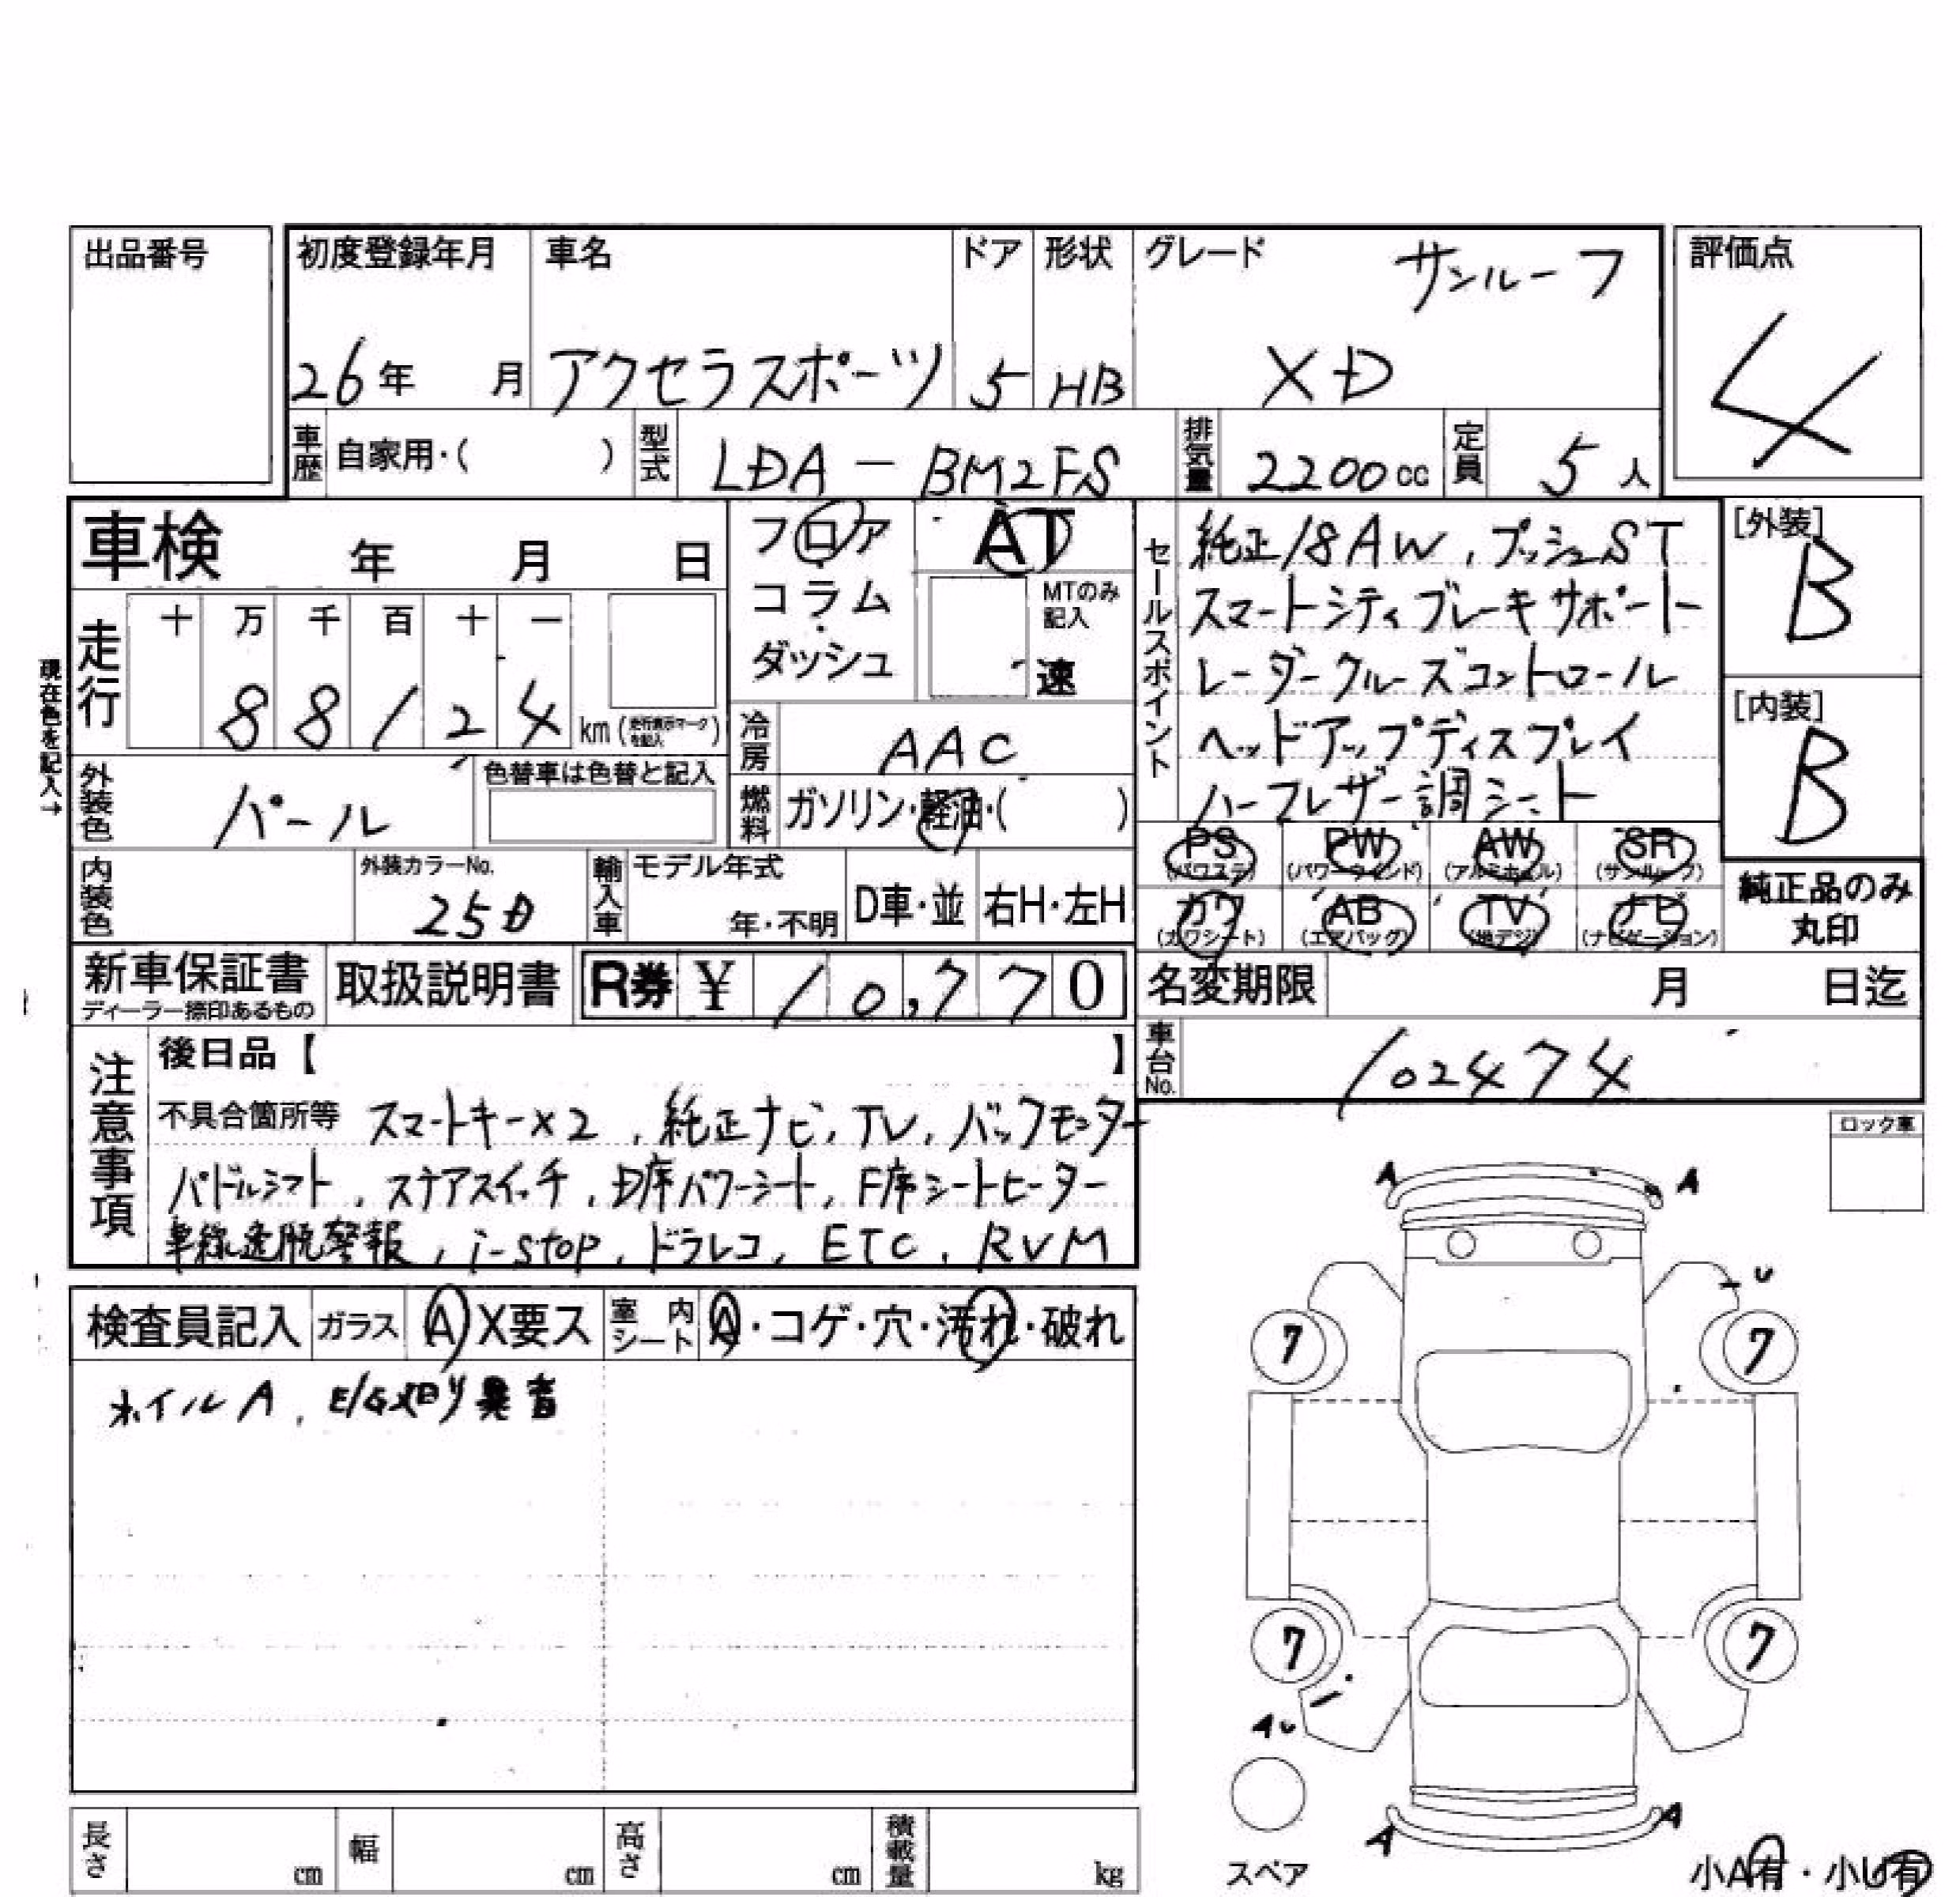 出品番号
初度登録年月 車名 ドア 形状 グレード サンルーフ 評価点
26年 月 アクセラスポーツ 5 HB XD 4
車歴 自家用・( ) 型式 LDA-BM2FS 排気量 2200cc 定員 5人
車検 年 月 日
フロア AT
コラム MTのみ記入
ダッシュ 速
走行 十 万 千 百 十 一
8 8 1 2 4 km (走行表示マークを記入)
現在色を記入→
冷房 AAC
外装色 パール 色替車は色替と記入
燃料 ガソリン・軽油・( )
内装色 外装カラーNo. 25D
輸入車 モデル年式 年・不明 D車・並 右H・左H
セールスポイント
純正18AW, プッシュST
スマートシティブレーキサポート
レーダークルーズコントロール
ヘッドアップディスプレイ
ハーフレザー調シート
[外装] B
[内装] B
PS (パワステ) PW (パワーウインド) AW (アルミホイル) SR (サンルーフ)
カワ (カワシート) AB (エアバッグ) TV (地デジ) ナビ (ナビゲーション)
純正品のみ丸印
新車保証書 ディーラー捺印あるもの 取扱説明書 R券 ¥ 10,770
名変期限 月 日迄
車台No. 102474
注意事項
後日品【 】
不具合箇所等 スマートキー×2, 純正ナビ, TV, バックモニター
パドルシフト, ステアスイッチ, D席パワーシート, F席シートヒーター
車線逸脱警報, i-stop, ドラレコ, ETC, RVM
ロック車
検査員記入 ガラス A X要ス 室内シート A・コゲ・穴・汚れ・破れ
ホイルA, E/G廻り異音
A A
U
7 7
7 7
AU
A A
スペア
小A有・小U有
長さ cm 幅 cm 高さ cm 積載量 kg